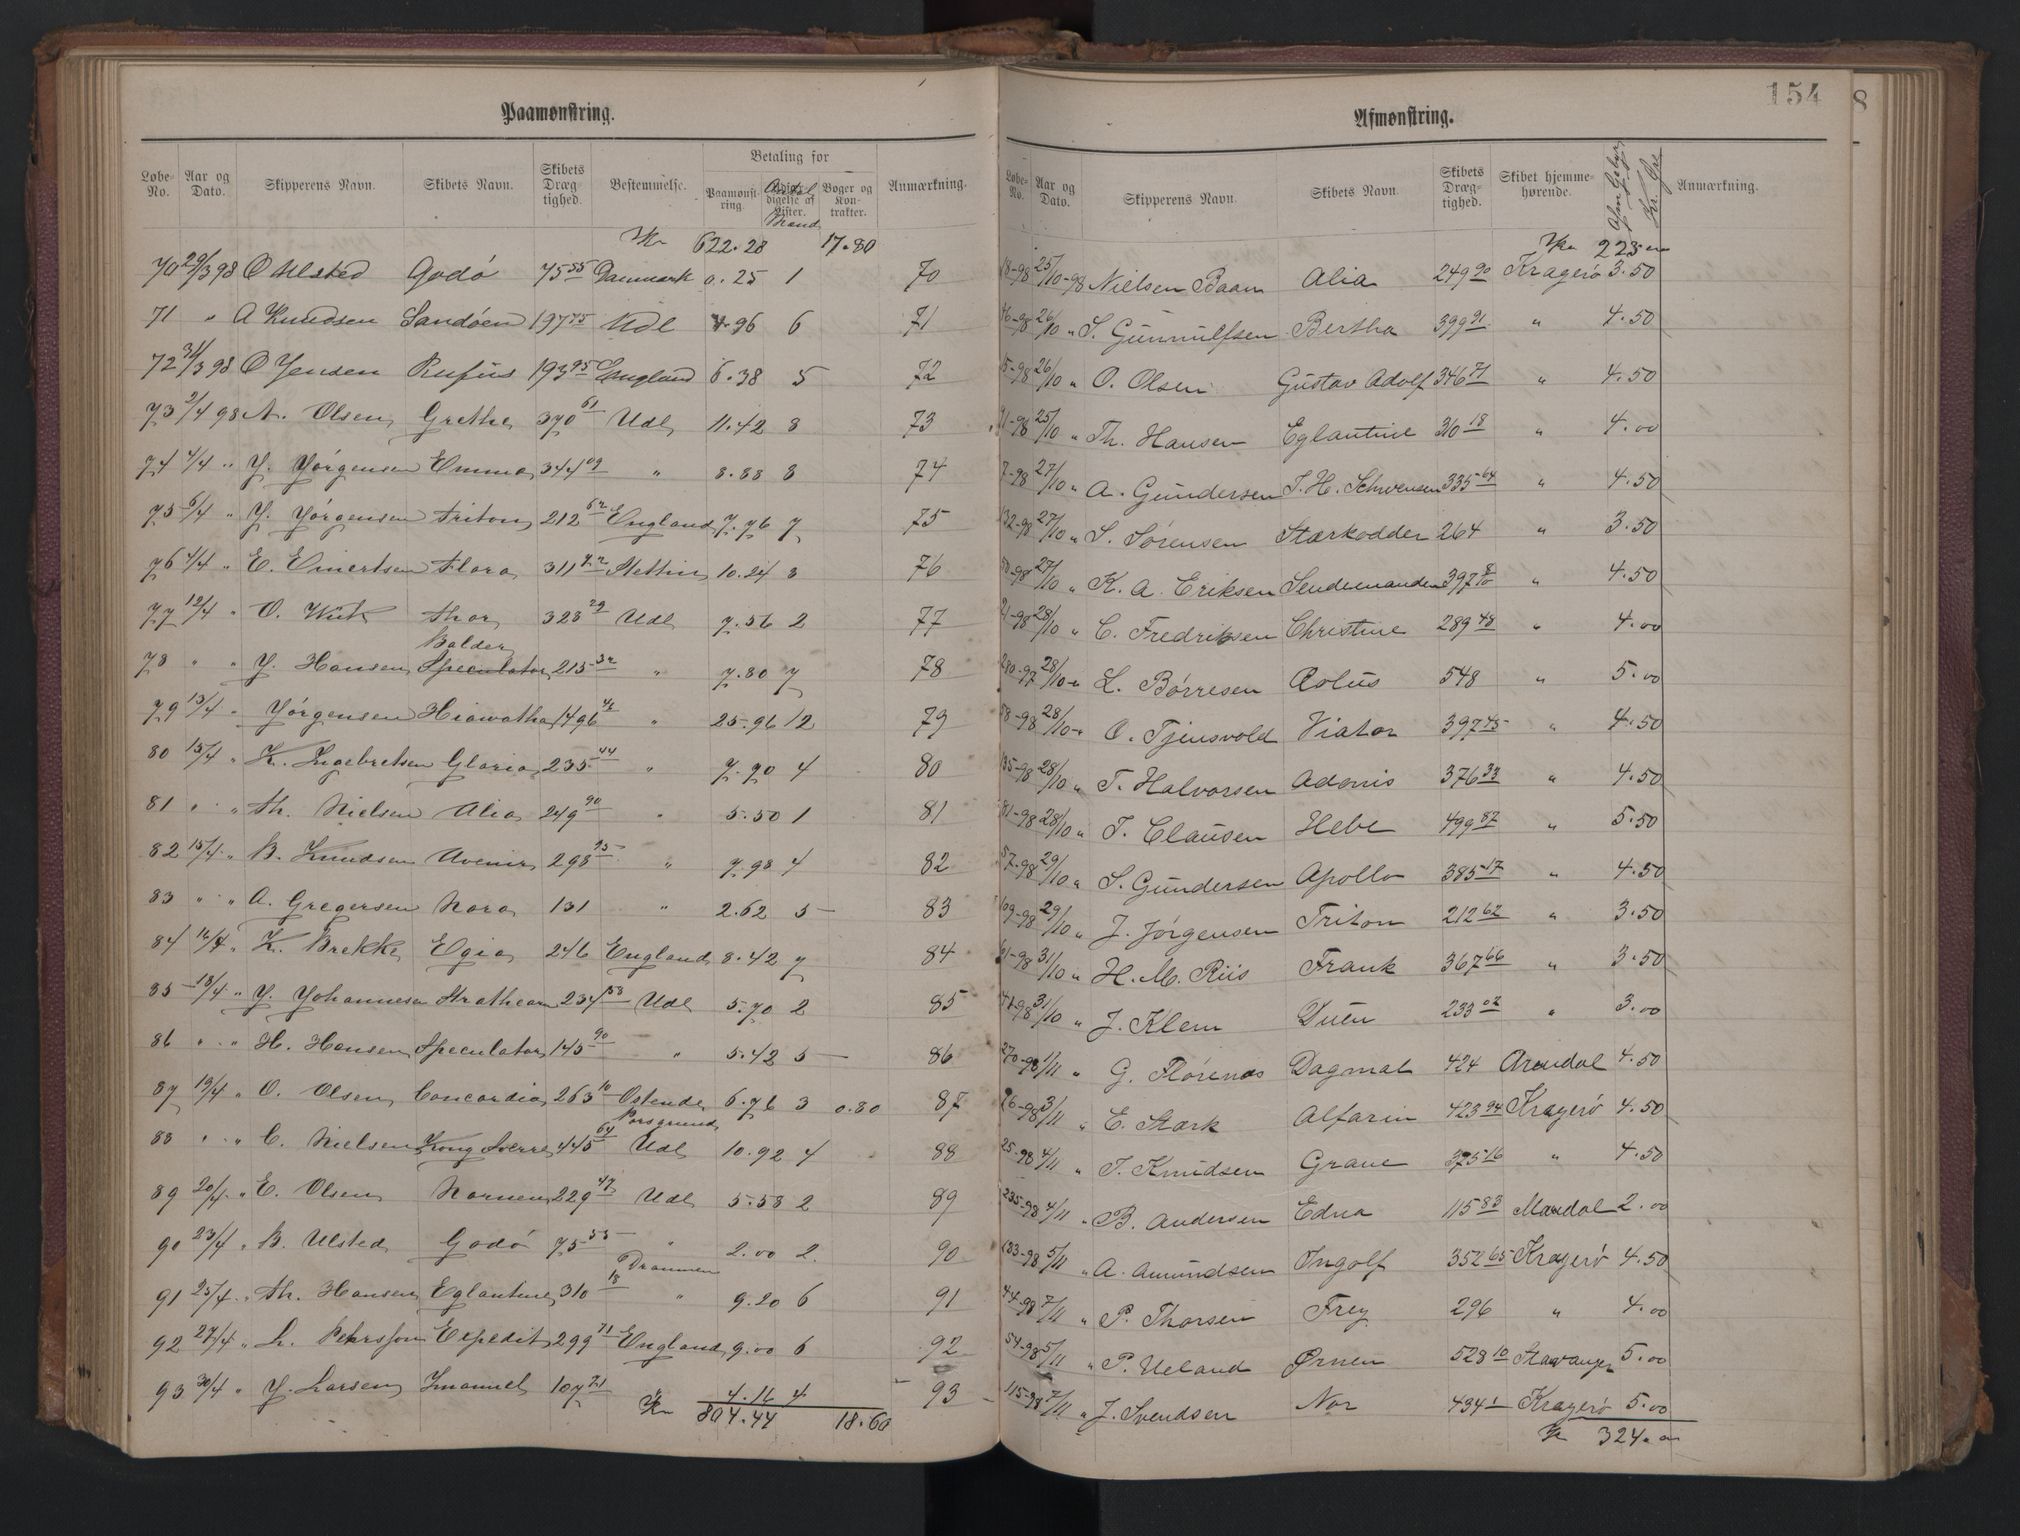 154
8
Paamønstring.
Løbe-No. Aar og Dato. Skipperens Navn. Skibets Navn. Skibets Dræg-tighed. Bestemmelse. Betaling for Paamønst-ring. digelse af Lister. Antal Mand Bøger og Kon-trakter. Anmærkning.
Kr 622.28 17.80
70 29/3 98 O Ulsted Godø 75 55 Danmark 0.25 1 70
71 " A Knudsen Sandøen 197 75 Udl 4.96 6 71
72 31/3 98 O Jensen Rufus 193 95 England 6.38 5 72
73 2/4 98 A. Olsen Grethe 370 61 Udl 11.42 8 73
74 4/4 " J. Jørgensen Emma 344 09 " 8.88 8 74
75 6/4 " J. Jørgensen Triton 212 62 England 7.76 7 75
76 4/4 " E. Einertsen Flora 311 72 Stettin 10.24 8 76
77 12/4 " O. Wiik Thor 328 29 Udl 7.56 2 77
Balder
78 " " J. Hansen Speculator 215 32 " 7.80 7 78
79 13/4 " Jørgensen Hiawatha 1496 42 " 25.96 12 79
80 15/4 " K. Ingebretsen Gloria 235 44 " 7.90 4 80
81 " " Th. Nielsen Alia 249 90 " 5.50 1 81
82 15/4 " B. Knudsen Avenir 298 95 " 7.98 4 82
83 " " A. Gregersen Nora 131 " 2.62 5 — 83
84 16/4 " K. Brekke Egia 246 England 8.42 7 84
85 18/4 " J. Johannesen Strathearn 234 58 Udl 5.70 2 85
86 " " H. Hansen Speculator 145 90 " 5.42 5 — 86
87 19/4 " O. Olsen Concordia 263 10 Ostende 6.76 3 0.80 87
Porsgrund
88 " " C. Nielsen Kong Sverre 445 64 Udl 10.92 4 88
89 20/4 " E. Olsen Nornen 229 47 Udl 5.58 2 89
90 23/4 " B. Ulsted Godø 75 55 " 2.00 2. 90
Drammen
91 25/4 " Th. Hansen Eglantine 310 18 " 9.20 6 91
92 27/4 " L. Pehrsson Expedit 299 71 England 9.00 6 92
93 30/4 " J. Larsen Imanuel 107 21 " 4.16 4 93
Kr 804.44 18.60
Afmønstring.
Løbe-No. Aar og Dato. Skipperens Navn. Skibets Navn. Skibets Dræg-tighed. Skibet hjemme-hørende. Afm. Gebyr Kr. Øre Anmærkning.
Kr 223.00
18-98 25/10-98 Nielsen Baam Alia 249 90 Kragerø 3.50
46-98 26/10 " S. Gunnulfsen Bertha 399 91 " 4.50
5-98 26/10 " O. Olsen Gustav Adolf 346 71 " 4.50
91-98 25/10 " Th. Hansen Eglantine 310 18 " 4.00
7-98 27/10 " A. Gundersen T. H. Schwensen 335 64 " 4.50
132-98 27/10 " S. Sørensen Stærkodder 264 " 3.50
50-98 27/10 " K. A. Eriksen Sendemanden 397 8/10 " 4.50
21-98 28/10 " C. Fredriksen Christine 289 48 " 4.00
280-97 28/10 " L. Børresen Æolus 548 " 5.00
58-98 28/10 " O. Tjensvold Viator 397 45 " 4.50
135-98 28/10 " T. Halvorsen Adonis 376 33 " 4.50
81-98 28/10 " T. Clausen Hebe 499 87 " 5.50
57-98 29/10 " S. Gundersen Apollo 385 17 " 4.50
109-98 29/10 " J. Jørgensen Triton 212 62 " 3.50
61-98 31/10 " H. M. Riis Frank 367 66 " 3.50
48-98 31/10 " J. Klem Duen 233 02 " 3.00
270-98 1/11 " G. Florenæs Dagmar 424 Arendal 4.50
26-98 3/11 " E. Stærk Alfarin 423 94 Kragerø 4.50
25-98 4/11 " T. Knudsen Grane 375 16 " 4.50
235-98 4/11 " B. Andersen Edna 115 83 Mandal 2.00
133-98 5/11 " A. Amundsen Ingolf 352 65 Kragerø 4.50
44-98 7/11 " P. Thorsen Frey 296 " 4.00
54-98 5/11 " P. Ueland Ørnen 528 10 Stavanger 5.00
115-98 7/11 " J. Svendsen Nor 434 1 Kragerø 5.00
Kr 324.00